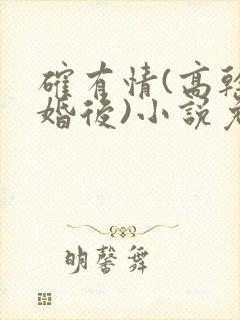 確有情(高幹
婚後)小説
明馨舞